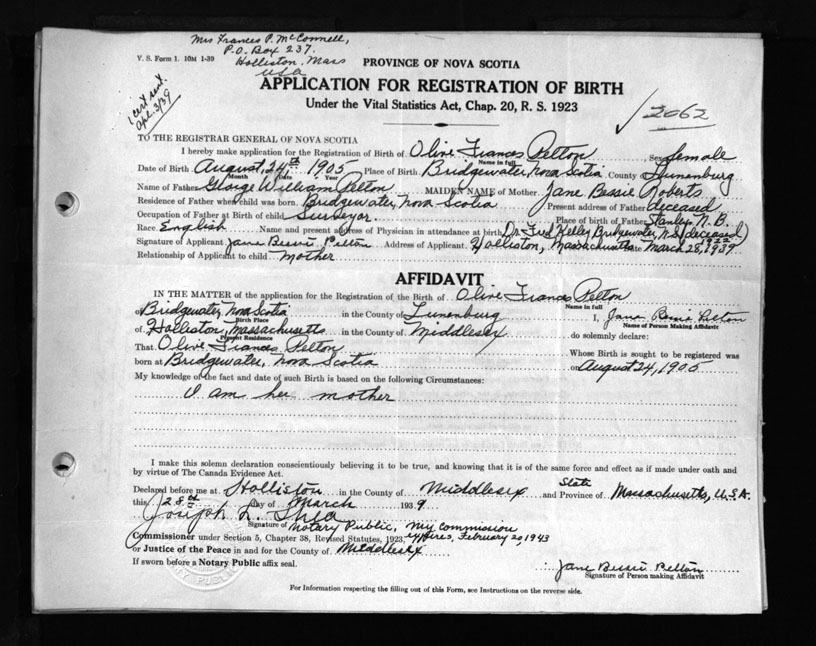 Mrs Frances P. McConnell,
P.O. Box 237.
Holliston, Mass
USA
V. S. Form 1. 10M 1-39
1 cert sent.
Apl. 3/39
PROVINCE OF NOVA SCOTIA
APPLICATION FOR REGISTRATION OF BIRTH
Under the Vital Statistics Act, Chap. 20, R. S. 1923
2062
TO THE REGISTRAR GENERAL OF NOVA SCOTIA
I hereby make application for the Registration of Birth of Olive Frances Pelton Sex female
Name in full
Date of Birth August, 24,th 1905 Place of Birth Bridgewater, Nova Scotia County Lunenburg
Month Date Year
Name of Father George William Pelton MAIDEN NAME of Mother Jane Bessie Roberts
Residence of Father when child was born. Bridgewater, Nova Scotia Present address of Father deceased
Occupation of Father at Birth of child Surveyor. Place of birth of Father Stanley N. B.
Race. English Name and present address of Physician in attendance at birth Dr. Fred Kelley Bridgewater, N.S. (deceased)
Signature of Applicant Jane Bessie Pelton Address of Applicant. Holliston, Massachusetts Date March 28, 1939.
Relationship of Applicant to child mother
AFFIDAVIT
IN THE MATTER of the application for the Registration of the Birth of Olive Frances Pelton
Name in full
of Bridgewater, Nova Scotia in the County of Lunenburg I, Jane Bessie Pelton
Birth Place Name of Person Making Affidavit
of Holliston, Massachusetts in the County of Middlesex do solemnly declare:
Present Residence
That Olive Frances Pelton Whose Birth is sought to be registered was
born at Bridgewater, Nova Scotia on August 24, 1905
My knowledge of the fact and date of such Birth is based on the following Circumstances:
I am her mother
I make this solemn declaration conscientiously believing it to be true, and knowing that it is of the same force and effect as if made under oath and
by virtue of The Canada Evidence Act.
State
Declared before me at Holliston in the County of Middlesex and Province of Massachusetts, U.S.A.
this 28th day of March 1939
Joseph L. Shea
Signature of Notary Public, My Commission
Commissioner under Section 5, Chapter 38, Revised Statutes, 1923, expires, February 20, 1943
or Justice of the Peace in and for the County of Middlesex
If sworn before a Notary Public affix seal.
Jane Bessie Pelton
Signature of Person making Affidavit
For Information respecting the filling out of this Form, see Instructions on the reverse side.